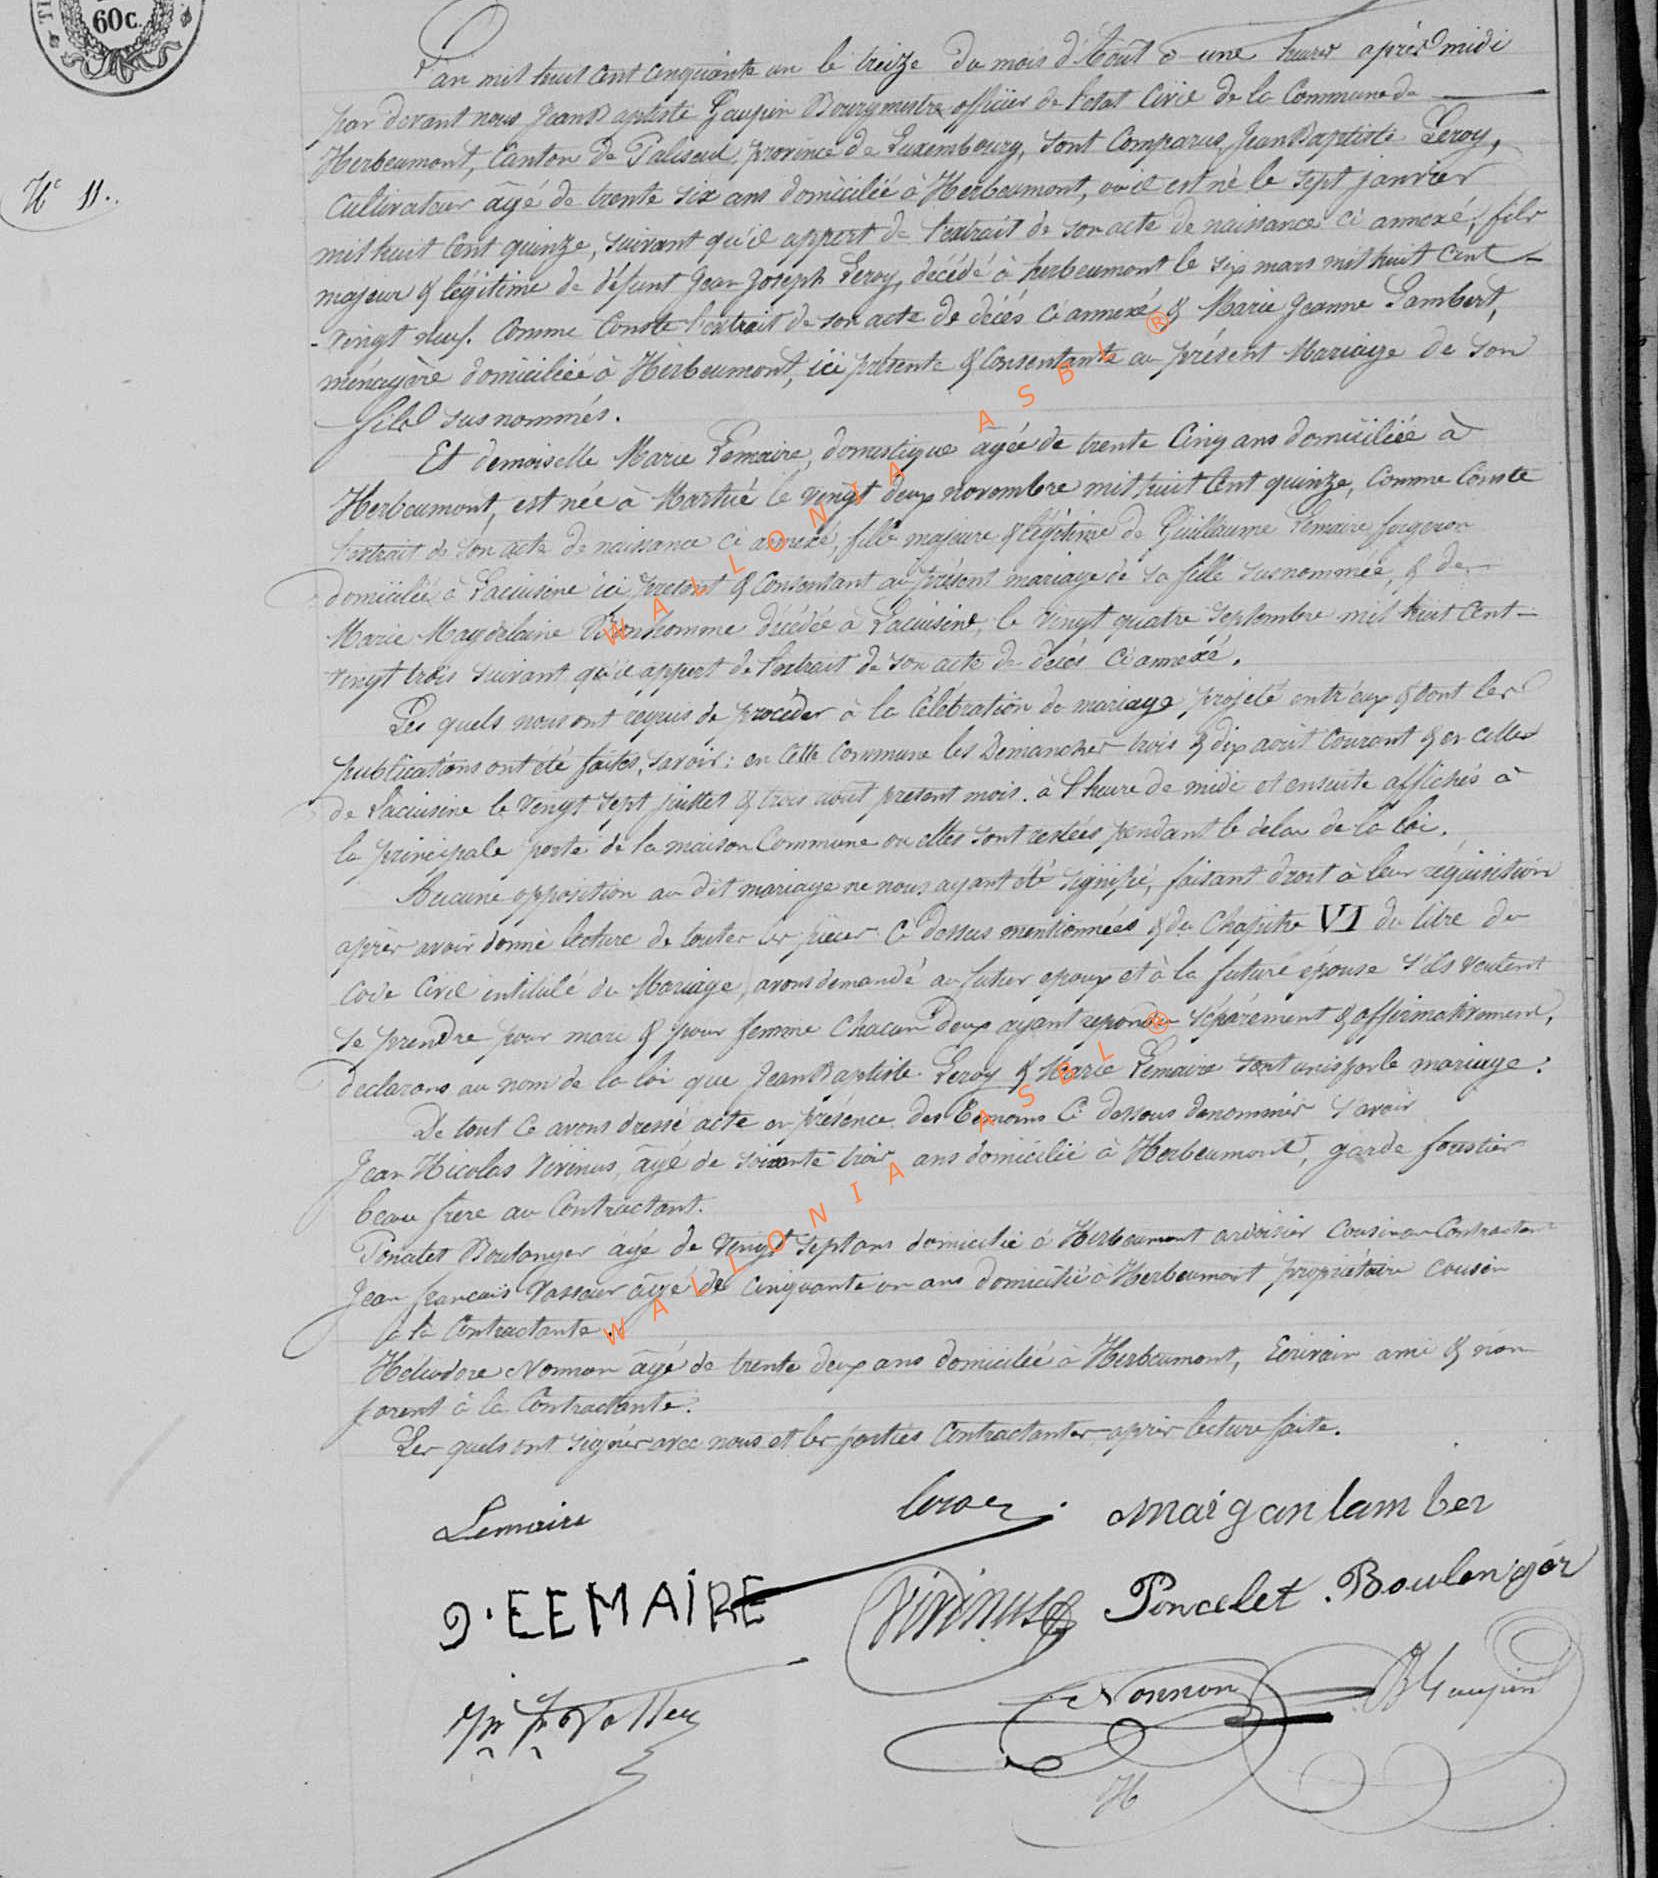 60c.
N° 11..
L'an mil huit cent cinquante un le treize du mois d'Août à une heures après midi
par devant nous Jean Baptiste Gaupin Bourgmestre officier de l'état Civil de la Commune de
Herbeumont, Canton de Paliseul, province de Luxembourg, sont Comparus Jean Baptiste Leroy,
Cultivateur âgé de trente six ans domicilié à Herbeumont, où il est né le sept janvier
mil huit Cent quinze, suivant qu'il appert de l'extrait de son acte de naissance ci annexé, fils
majeur & légitime de défunt Jean Joseph Leroy, décédé à herbeumont le six mars mil huit Cent
vingt neuf. Comme Conste l'extrait de son acte de décès Ci annexé & Marie Jeanne Lambert,
ménagère domiciliée à Herbeumont, ici présente & Consentante au présent Mariage de son
fils susnommés.
Et demoiselle Marie Lemaire, domestique âgée de trente Cinq ans domiciliée à
Herbeumont, est née à Martué le vingt deux novembre mil huit Cent quinze, Comme Conste
l'extrait de son acte de naissance Ci annexé, fille majeure & légitime de Guillaume Lemaire forgeron
domicilié à Lacuisine ici présent & Consentant au présent mariage de sa fille susnommée, & de
Marie Magdelaine Bonhomme décédée à Lacuisine, le vingt quatre Septembre mil huit Cent
vingt trois suivant qu'il appert de l'extrait de son acte de décès Ci annexé.
Les quels nous ont requis de procéder à la Célébration de mariage projeté entr'eux & dont les
publications ont été faites, savoir: en Cette Commune les Dimanches trois & dix août Courant & en celle
de Lacuisine le vingt sept juillet & trois août présent mois. à l'heure de midi et ensuite affichés à
la principale porte de la maison Commune ou elles sont restées pendant le délai de la loi.
Aucune opposition au dit mariage ne nous ayant été signifié, faisant droit à leur réquisition
après avoir donné lecture de toutes les pièces Ci dessus mentionnées & du Chapitre VI du titre du
Code Civil intitulé du Mariage, avons demandé au futur epoux et à la future épouse s'ils veulent
se prendre pour mari & pour femme Chacun d'eux ayant repondu séparément & affirmativement,
declarons au nom de la loi que Jean Baptiste Leroy & Marie Lemaire sont unis par le mariage:
De tout Ce avons dressé acte en présence des témoins Ci dessous denommés savoir
Jean Nicolas Virinus, âgé de soixante trois ans domicilié à Herbeumont, garde forestier
beau frere au Contractant.
Poncelet Boulanger âgé de vingt sept ans domicilié à Herbeumont ardoisier Cousin au Contractant
Jean francois Vasseur âgé de cinquante un ans domicilié à Herbeumont propriétaire cousin
à la Contractante.
Héliodore Nonnon âgé de trente deux ans domicilié à Herbeumont, Ecrivain ami & non
parent à la Contractante.
Les quels ont signés avec nous et les parties Contractantes après lecture faite.
Lemaire
leroy
maigan lamber
g. EEMAIRE
Virinus
Poncelet . Boulenger
Nonnon
JB Gaupin
WALLONIA ASBL ®
WALLONIA ASBL ®